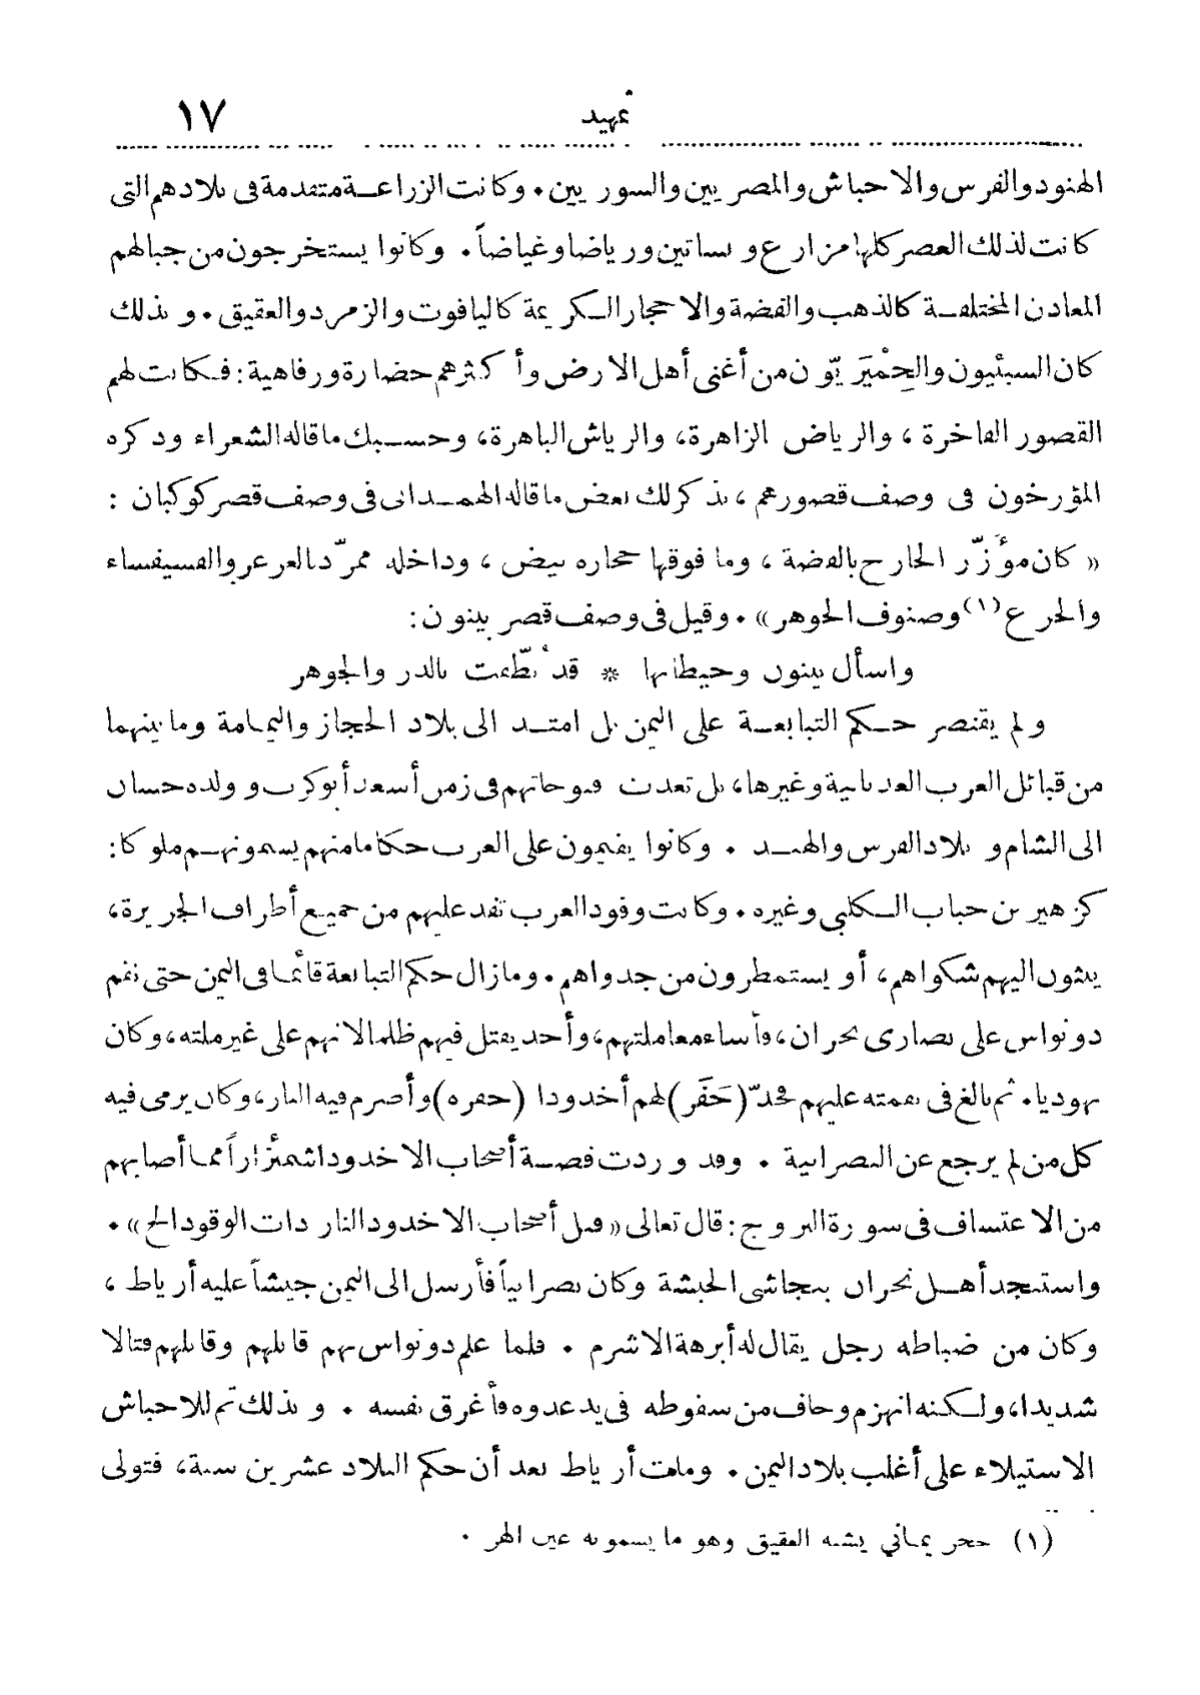 تمهيد ١٧
الهنود والفرس والاحباش والمصريين والسوريين. وكانت الزراعة متقدمة فى بلادهم التى
كانت لذلك العصر كلها مزارع وبساتين ورياضا وغياضاً. وكانوا يستخرجون من جبالهم
المعادن المختلفة كالذهب والفضة والاحجار الكريمة كاليافوت والزمرد والعقيق. وبذلك
كان السبئيون والحِمْيَريّون من أغنى أهل الارض وأكثرهم حضارة ورفاهية: فكانت لهم
القصور الفاخرة، والرياض الزاهرة، والرياش الباهرة، وحسبك ما قاله الشعراء وذكره
المؤرخون فى وصف قصورهم، نذكر لك بعض ما قاله الهمدانى فى وصف قصر كوكبان :
« كان مؤَزّر الخارج بالفضة، وما فوقها حجاره بيض، وداخله ممرّد العرعر والفسيفساء
والجرع (١) وصنوف الجوهر». وقيل فى وصف قصر بينون:
واسأل بينون وحيطانها * قد نُطّقت بالدر والجوهر
ولم يقتصر حكم التبابعة على اليمن بل امتد الى بلاد الحجاز واليمامة وما بينهما
من قبائل العرب العدنانية وغيرها، بل تعدت فتوحاتهم فى زمن أسعد أبو كرب وولده حسان
الى الشام وبلاد الفرس والهند. وكانوا يقيمون على العرب حكاما منهم يسمونهم ملوكا:
كزهير بن حباب الكلبى وغيره. وكانت وفود العرب تفد عليهم من جميع أطراف الجزيرة،
يبثون اليهم شكواهم، أو يستمطرون من جدواهم. وما زال حكم التبابعة قائما فى اليمن حتى نقم
ذو نواس على نصارى نجران، فأساء معاملتهم، وأخذ يقتل فيهم ظلما لانهم على غير ملته، وكان
يهوديا. ثم بالغ فى نقمته عليهم فخدّ (حَفَر) لهم أخدودا (حفره) وأضرم فيه النار، وكان يرمى فيه
كل من لم يرجع عن النصرانية. وقد وردت قصة أصحاب الاخدود اشمئزازاً مما أصابهم
من الاعتساف فى سورة البروج: قال تعالى «قتل أصحاب الاخدود النار ذات الوقود الخ».
واستنجد أهل نجران بنجاشى الحبشة وكان نصرانياً فأرسل الى اليمن جيشاً عليه أرياط،
وكان من ضباطه رجل يقال له أبرهة الاشرم. فلما علم ذو نواس بهم قابلهم وقاتلهم قتالا
شديدا، ولكنه انهزم وخاف من سقوطه فى يد عدوه فأغرق نفسه. وبذلك تم للاحباش
الاستيلاء على أغلب بلاد اليمن. ومات أرياط بعد أن حكم البلاد عشرين سنة، فتولى
(١) حجر يماني يشبه العقيق وهو ما يسمونه عين الهر.